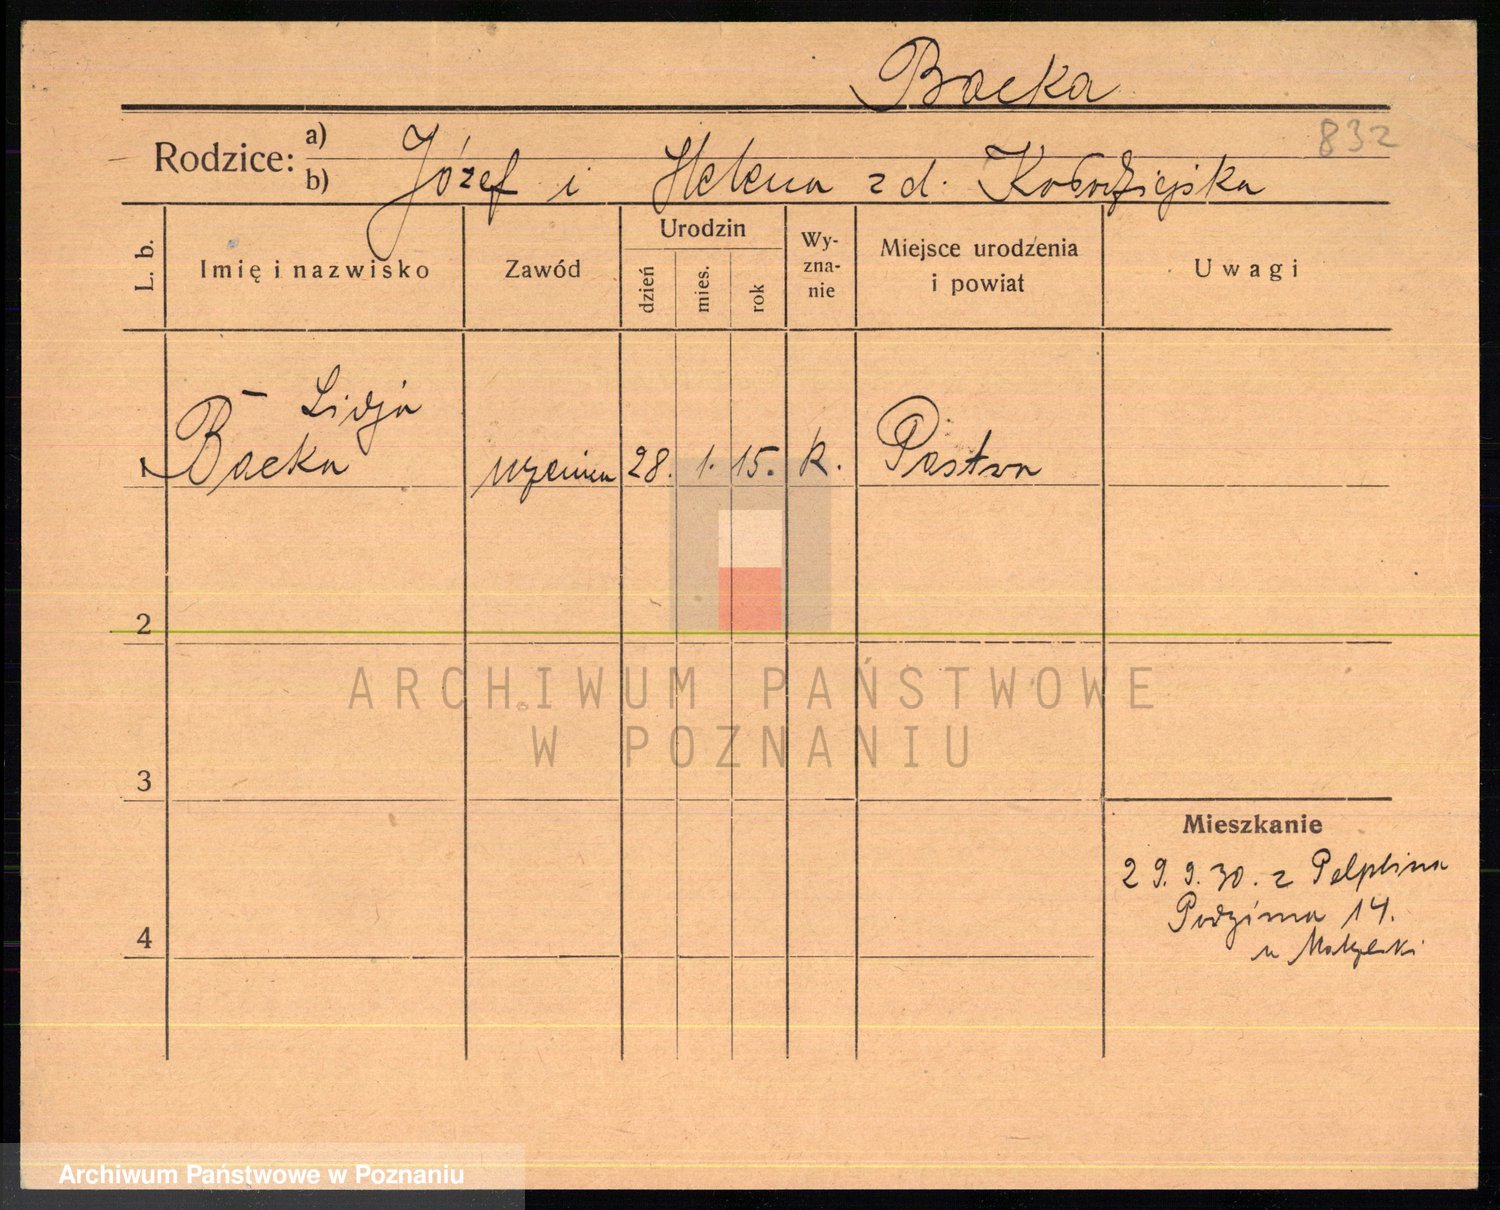 Backa
832
Rodzice: a)
b) Józef i Helena z d. Kołodziejska
L. b.
Imię i nazwisko
Zawód
Urodzin
dzień
mies.
rok
Wy-
zna-
nie
Miejsce urodzenia
i powiat
Uwagi
Lidja
1 Backa uczenica 28. 1. 15. k.
2
3
4
Mieszkanie
29.9.30. z Pelplina
14.
u
ARCHIWUM PAŃSTWOWE
W POZNANIU
Archiwum Państwowe w Poznaniu